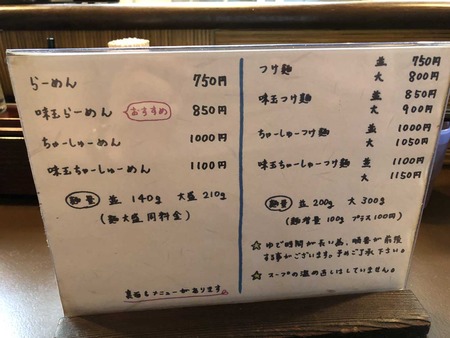 らーめん 750円
味玉らーめん おすすめ 850円
ちゃーしゅーめん 1000円
味玉ちゃーしゅーめん 1100円
麺量 並 140g 大盛 210g
(麺大盛 同料金)
裏面もメニューがあります。
つけ麺 並 750円
大 800円
味玉つけ麺 並 850円
大 900円
ちゃーしゅーつけ麺 並 1000円
大 1050円
味玉ちゃーしゅーつけ麺 並 1100円
大 1150円
麺量 並 200g 大 300g
(麺増量 100g プラス100円)
☆ ゆで時間が長い為、順番が前後
する事がございます。予めご了承下さい。
☆ スープの温め直しはしていません。